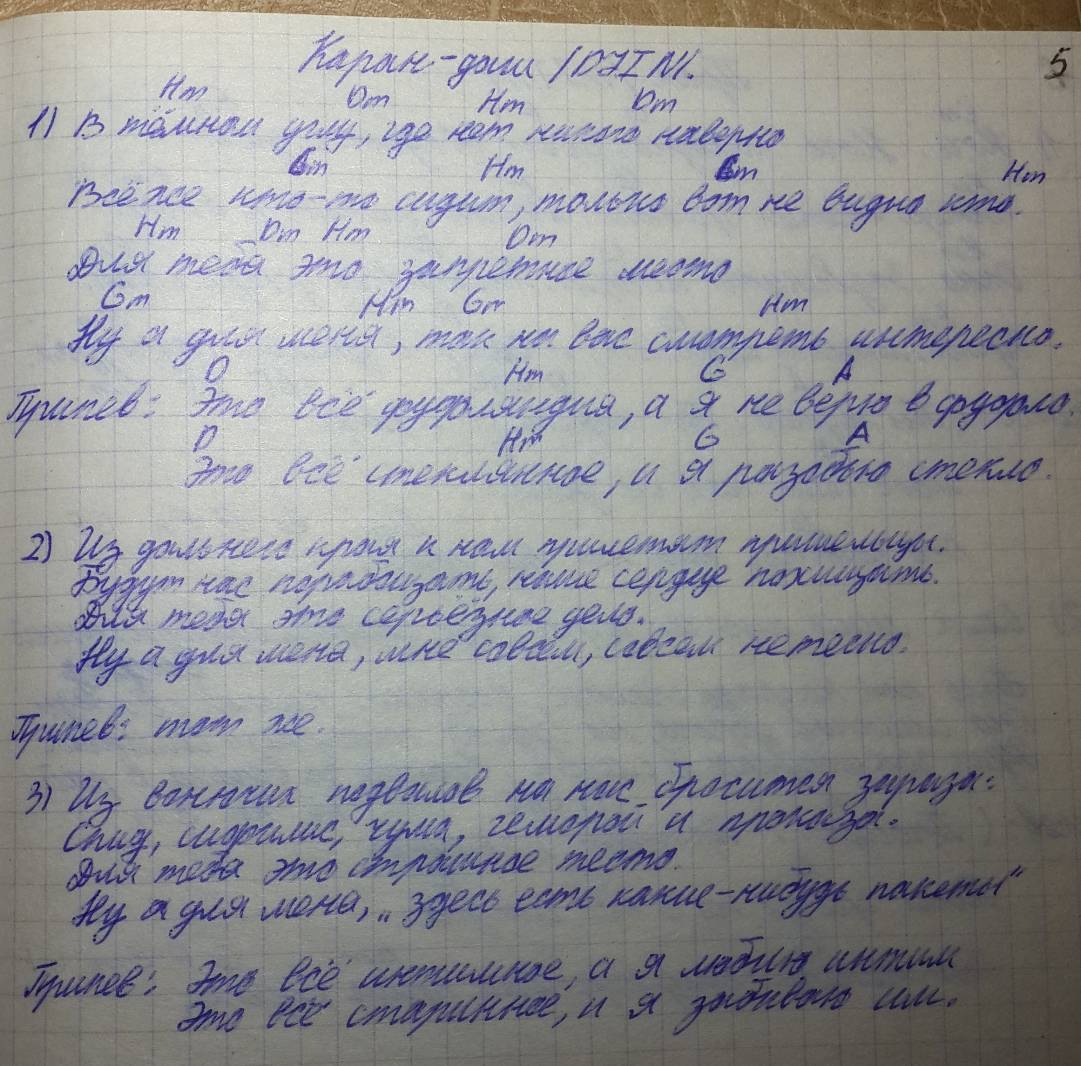 Каран-даш /DJIN/.
5
Hm Dm Hm Dm
1) В тёмном углу, где нет никого наверно
Gm Hm Gm Hm
Всё же кто-то сидит, только вот не видно кто.
Hm Dm Hm Dm
Для тебя это запретное место
Gm Hm Gm Hm
Ну а для меня, так на вас смотреть интересно.
D Hm G A
Припев: Это всё фуфляндия, а я не верю в фуфло.
D Hm G A
Это всё стеклянное, и я разобью стекло.
2) Из дальнего края к нам прилетят пришельцы.
Будут нас порабощать, наше сердце похищать.
Для тебя это серьёзное дело.
Ну а для меня, мне совсем, совсем нетесно.
Припев: тот же.
3) Из вонючих подвалов на нас бросится зараза:
Спид, сифилис, чума, геморой и проказа.
Для тебя это страшное тесто.
Ну а для меня, „здесь есть какие-нибудь пакеты“
Припев: Это всё интимное, а я люблю интим
Это всё старинное, и я забиваю им.